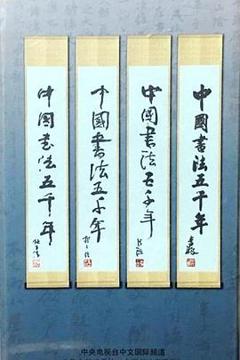 中国书法五千年
中國書法五千年
中国書法五千年
中國書法五千年
中央电视台中文国际频道